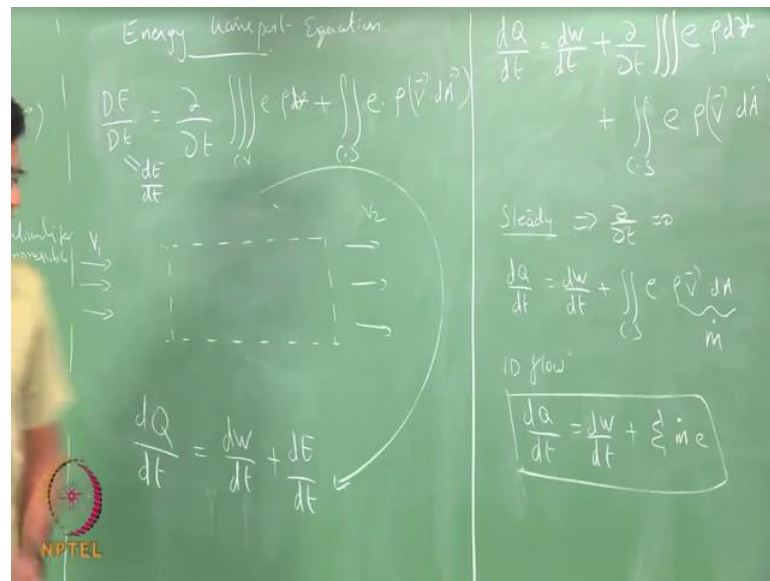 Energy Transport Equation.
DE/Dt = ∂/∂t ∭ e ρ dV + ∬ e · ρ(V⃗ · dA⃗)
C.V C.S
dE/dt
V₁ V₂
dQ/dt = dW/dt + dE/dt
dQ/dt = dW/dt + ∂/∂t ∭ e ρ dV
+ ∬ e ρ(V⃗ · dA⃗)
C.S
Steady ⇒ ∂/∂t = 0
dQ/dt = dW/dt + ∬ e ρ V⃗ · dA
C.S ṁ
1D flow
dQ/dt = dW/dt + Σ ṁ e
NPTEL